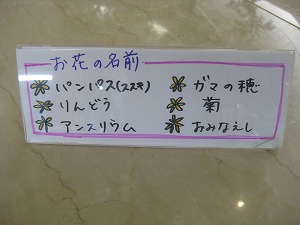 お花の名前
パンパス(ススキ)
りんどう
アンスリウム
ガマの穂
菊
おみなえし